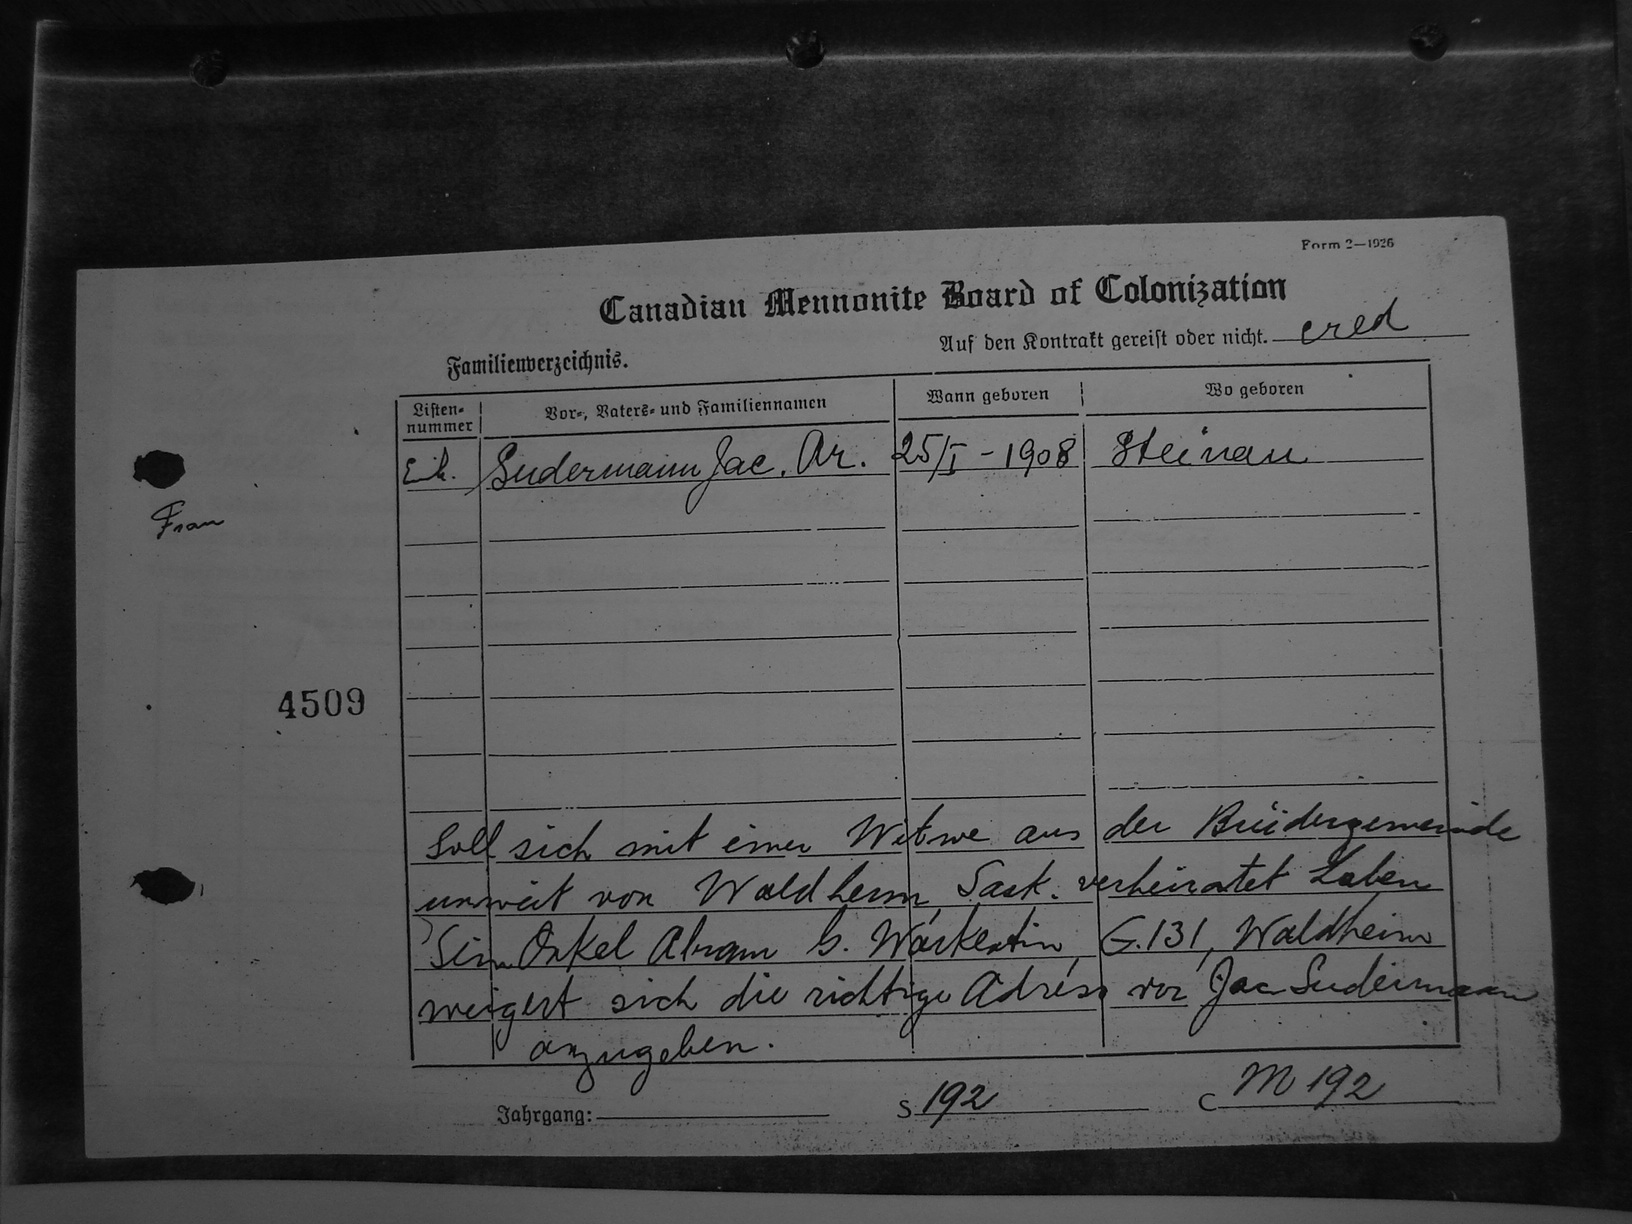 Form 2—1926
Canadian Mennonite Board of Colonization
Auf den Kontrakt gereist oder nicht. cred
Familienverzeichnis.
Listen-nummer Vor-, Vaters- und Familiennamen Wann geboren Wo geboren
Sudermann Jac. Ar. 25/I - 1908 Steinau
Frau
4509
Soll sich mit einer Witwe aus der Brüdergemeinde
unweit von Waldheim, Sask. verheiratet haben
Sein Onkel Abram G. Warkentin, G.131, Waldheim
weigert sich die richtige Adress von Jac Sudermann
anzugeben.
Jahrgang: S 192 C M 192